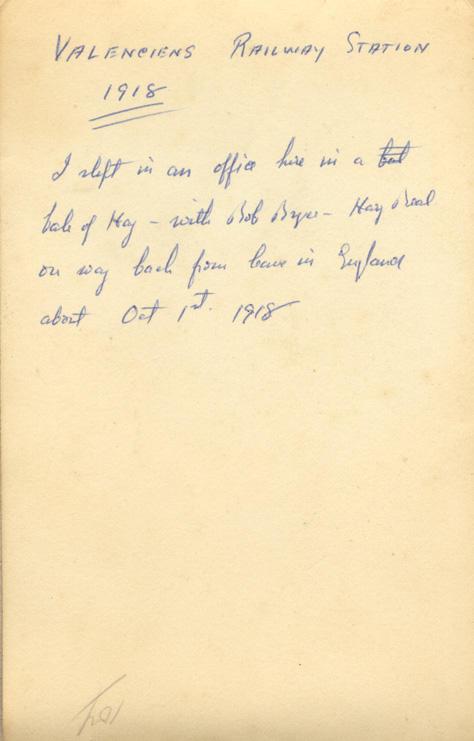 VALENCIENS RAILWAY STATION
1918
I slept in an office here in a
bale of Hay - with Bob - Hay
on way back from leave in England
about Oct 1st. 1918